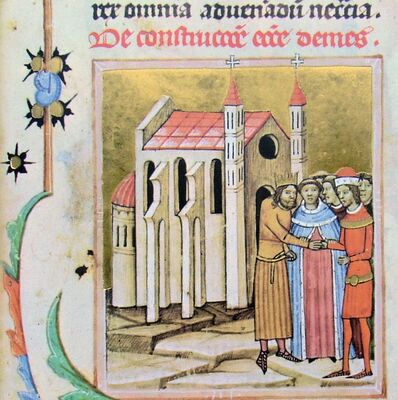 rex omnia aduenādū necc̄ia.
De construccōe ecc̄e demes.